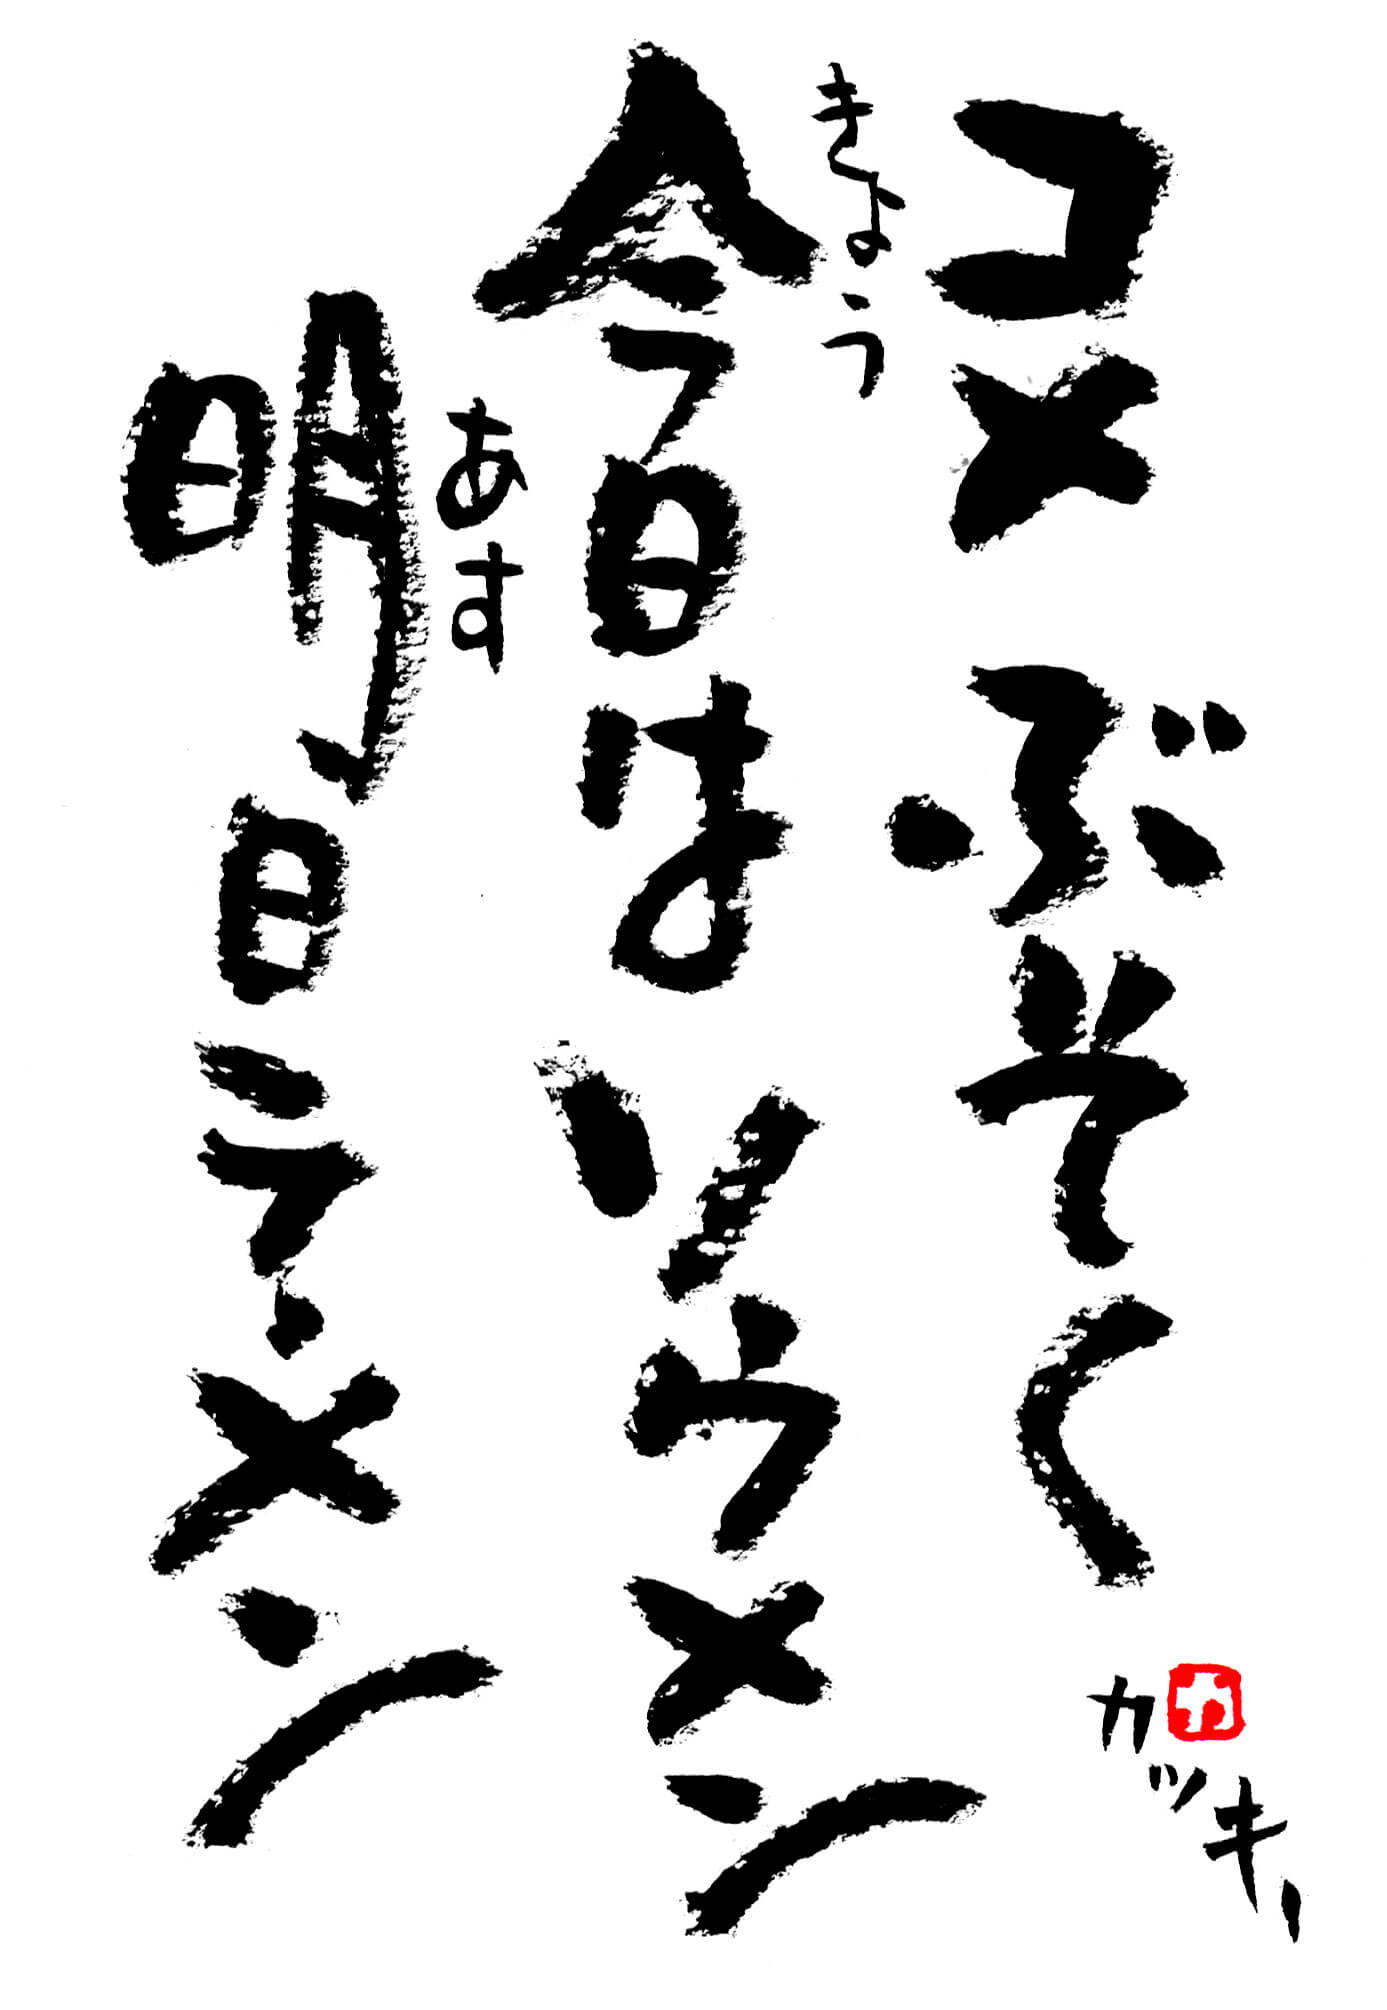 コメ ぶそく
きょう
今日は ソウメン
あす
明日 ラーメン
カ
カッキー